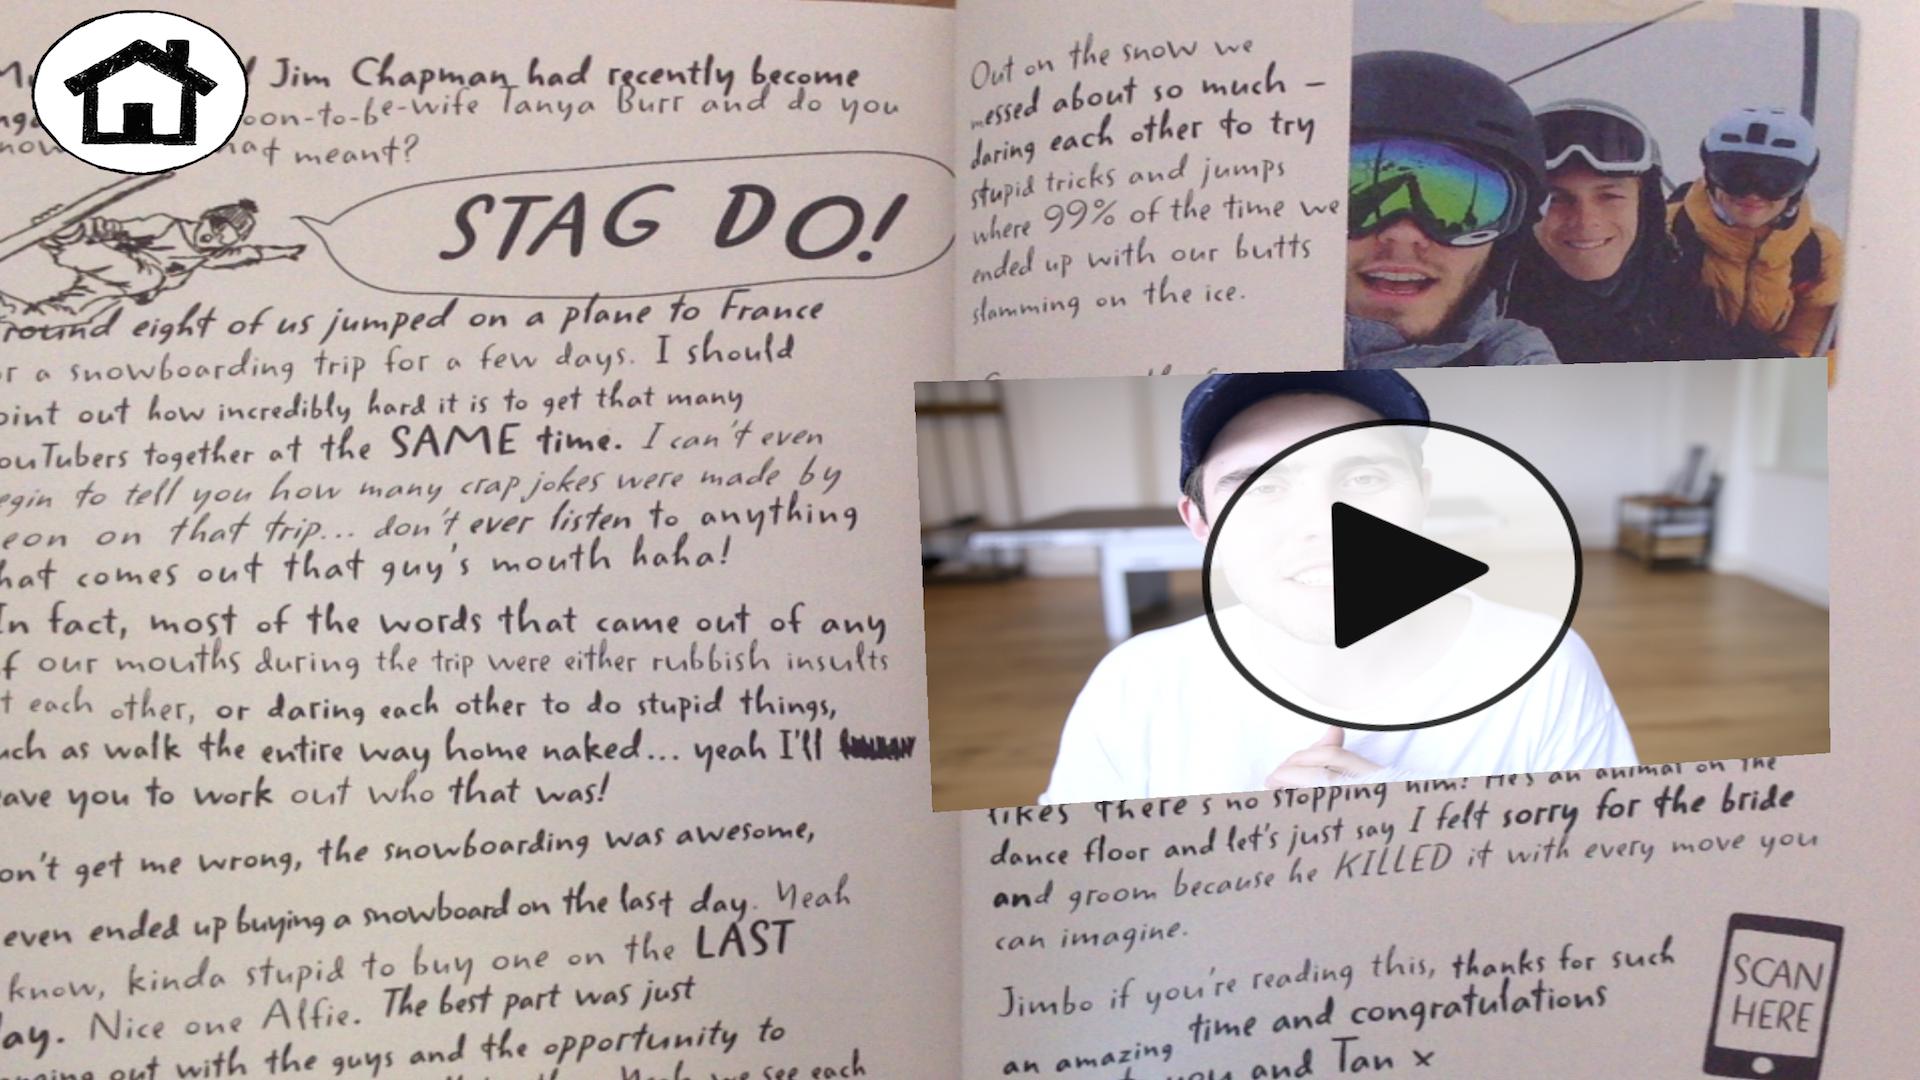 Jim Chapman had recently become
oon-to-be-wife Tanya Burr and do you
meant?
STAG DO!
round eight of us jumped on a plane to France
or a snowboarding trip for a few days. I should
oint out how incredibly hard it is to get that many
ouTubers together at the SAME time. I can't even
egin to tell you how many crap jokes were made by
eon on that trip... don't ever listen to anything
hat comes out that guy's mouth haha!
In fact, most of the words that came out of any
f our mouths during the trip were either rubbish insults
t each other, or daring each other to do stupid things,
uch as walk the entire way home naked... yeah I'll
eave you to work out who that was!
on't get me wrong, the snowboarding was awesome,
even ended up buying a snowboard on the last day. Yeah
know, kinda stupid to buy one on the LAST
ay. Nice one Alfie. The best part was just
anging out with the guys and the opportunity to
Yeah we see each
Out on the snow we
messed about so much –
daring each other to try
stupid tricks and jumps
where 99% of the time we
ended up with our butts
slamming on the ice.
likes there's no stopping him! He's an animal on the
dance floor and let's just say I felt sorry for the bride
and groom because he KILLED it with every move you
can imagine.
Jimbo if you're reading this, thanks for such
an amazing time and congratulations
you and Tan x
SCAN
HERE